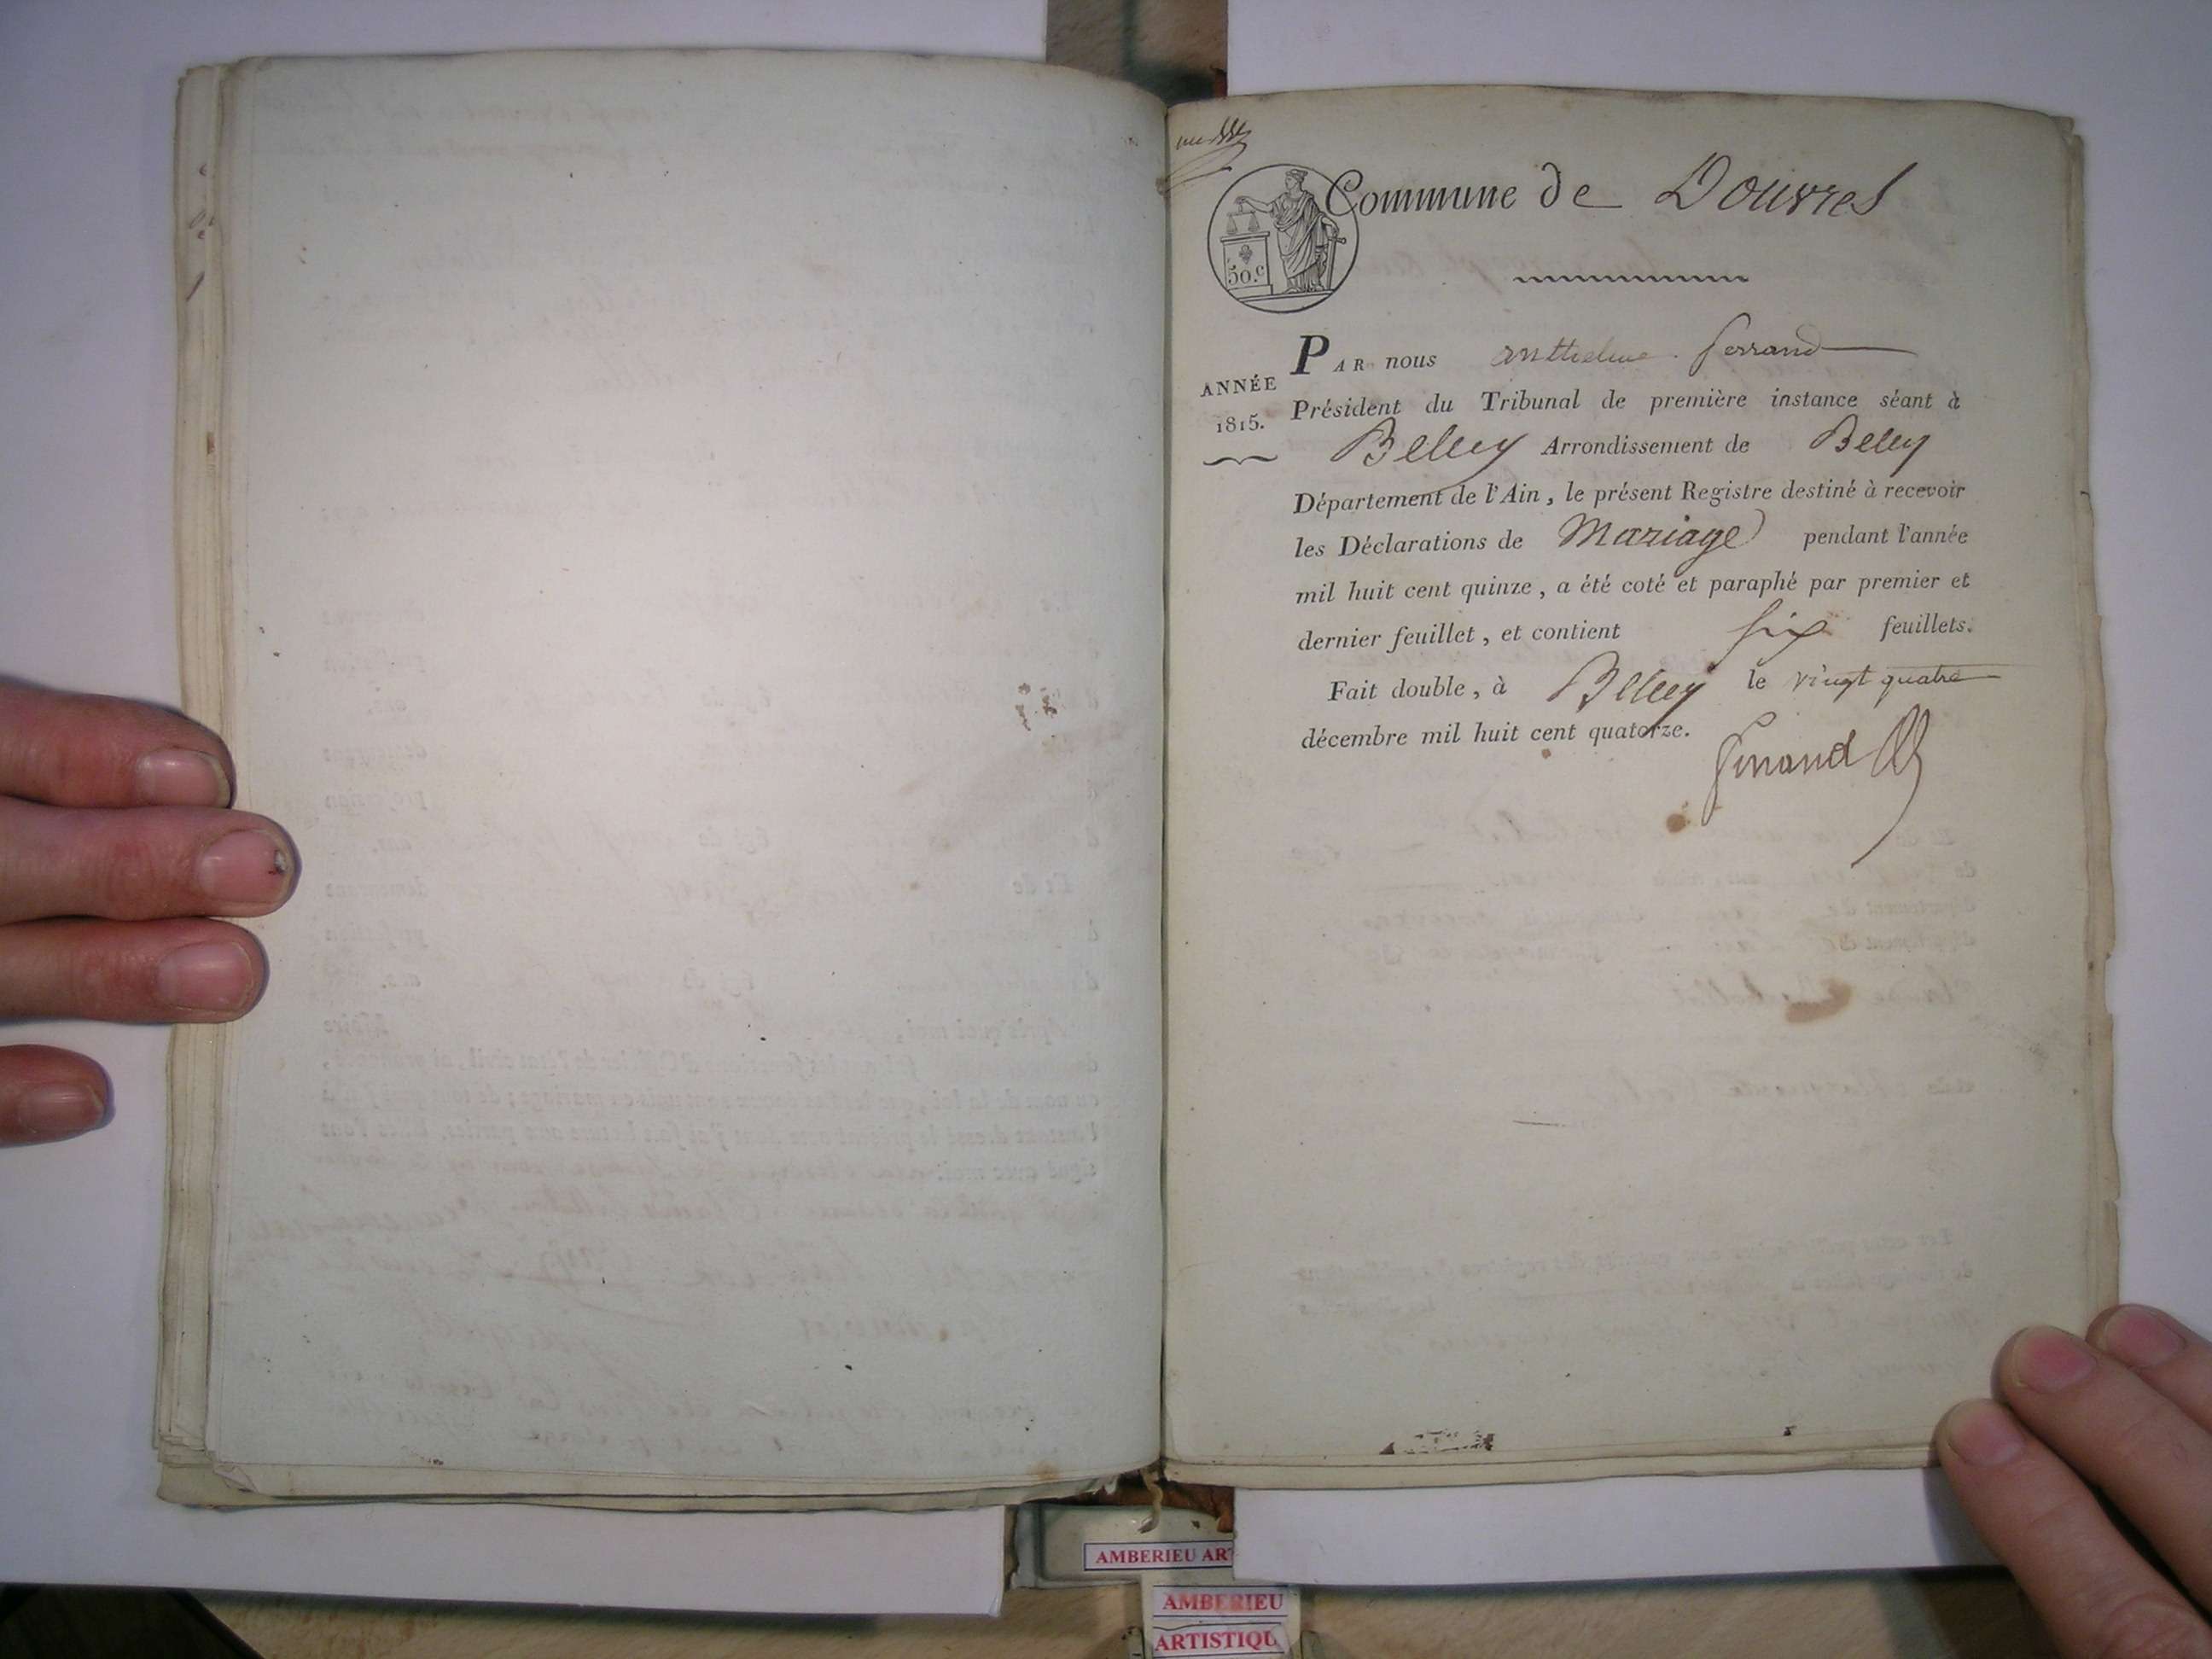 Commune de Douvres
50.c
PAR nous anthelme ferrand
ANNÉE
1815.
Président du Tribunal de première instance séant à
Belley Arrondissement de Belley
Département de l'Ain, le présent Registre destiné à recevoir
les Déclarations de Mariage pendant l'année
mil huit cent quinze, a été coté et paraphé par premier et
dernier feuillet, et contient six feuillets.
Fait double, à Belley le vingt quatre
décembre mil huit cent quatorze.
ferrand
AMBERIEU AR
AMBERIEU
ARTISTIQU